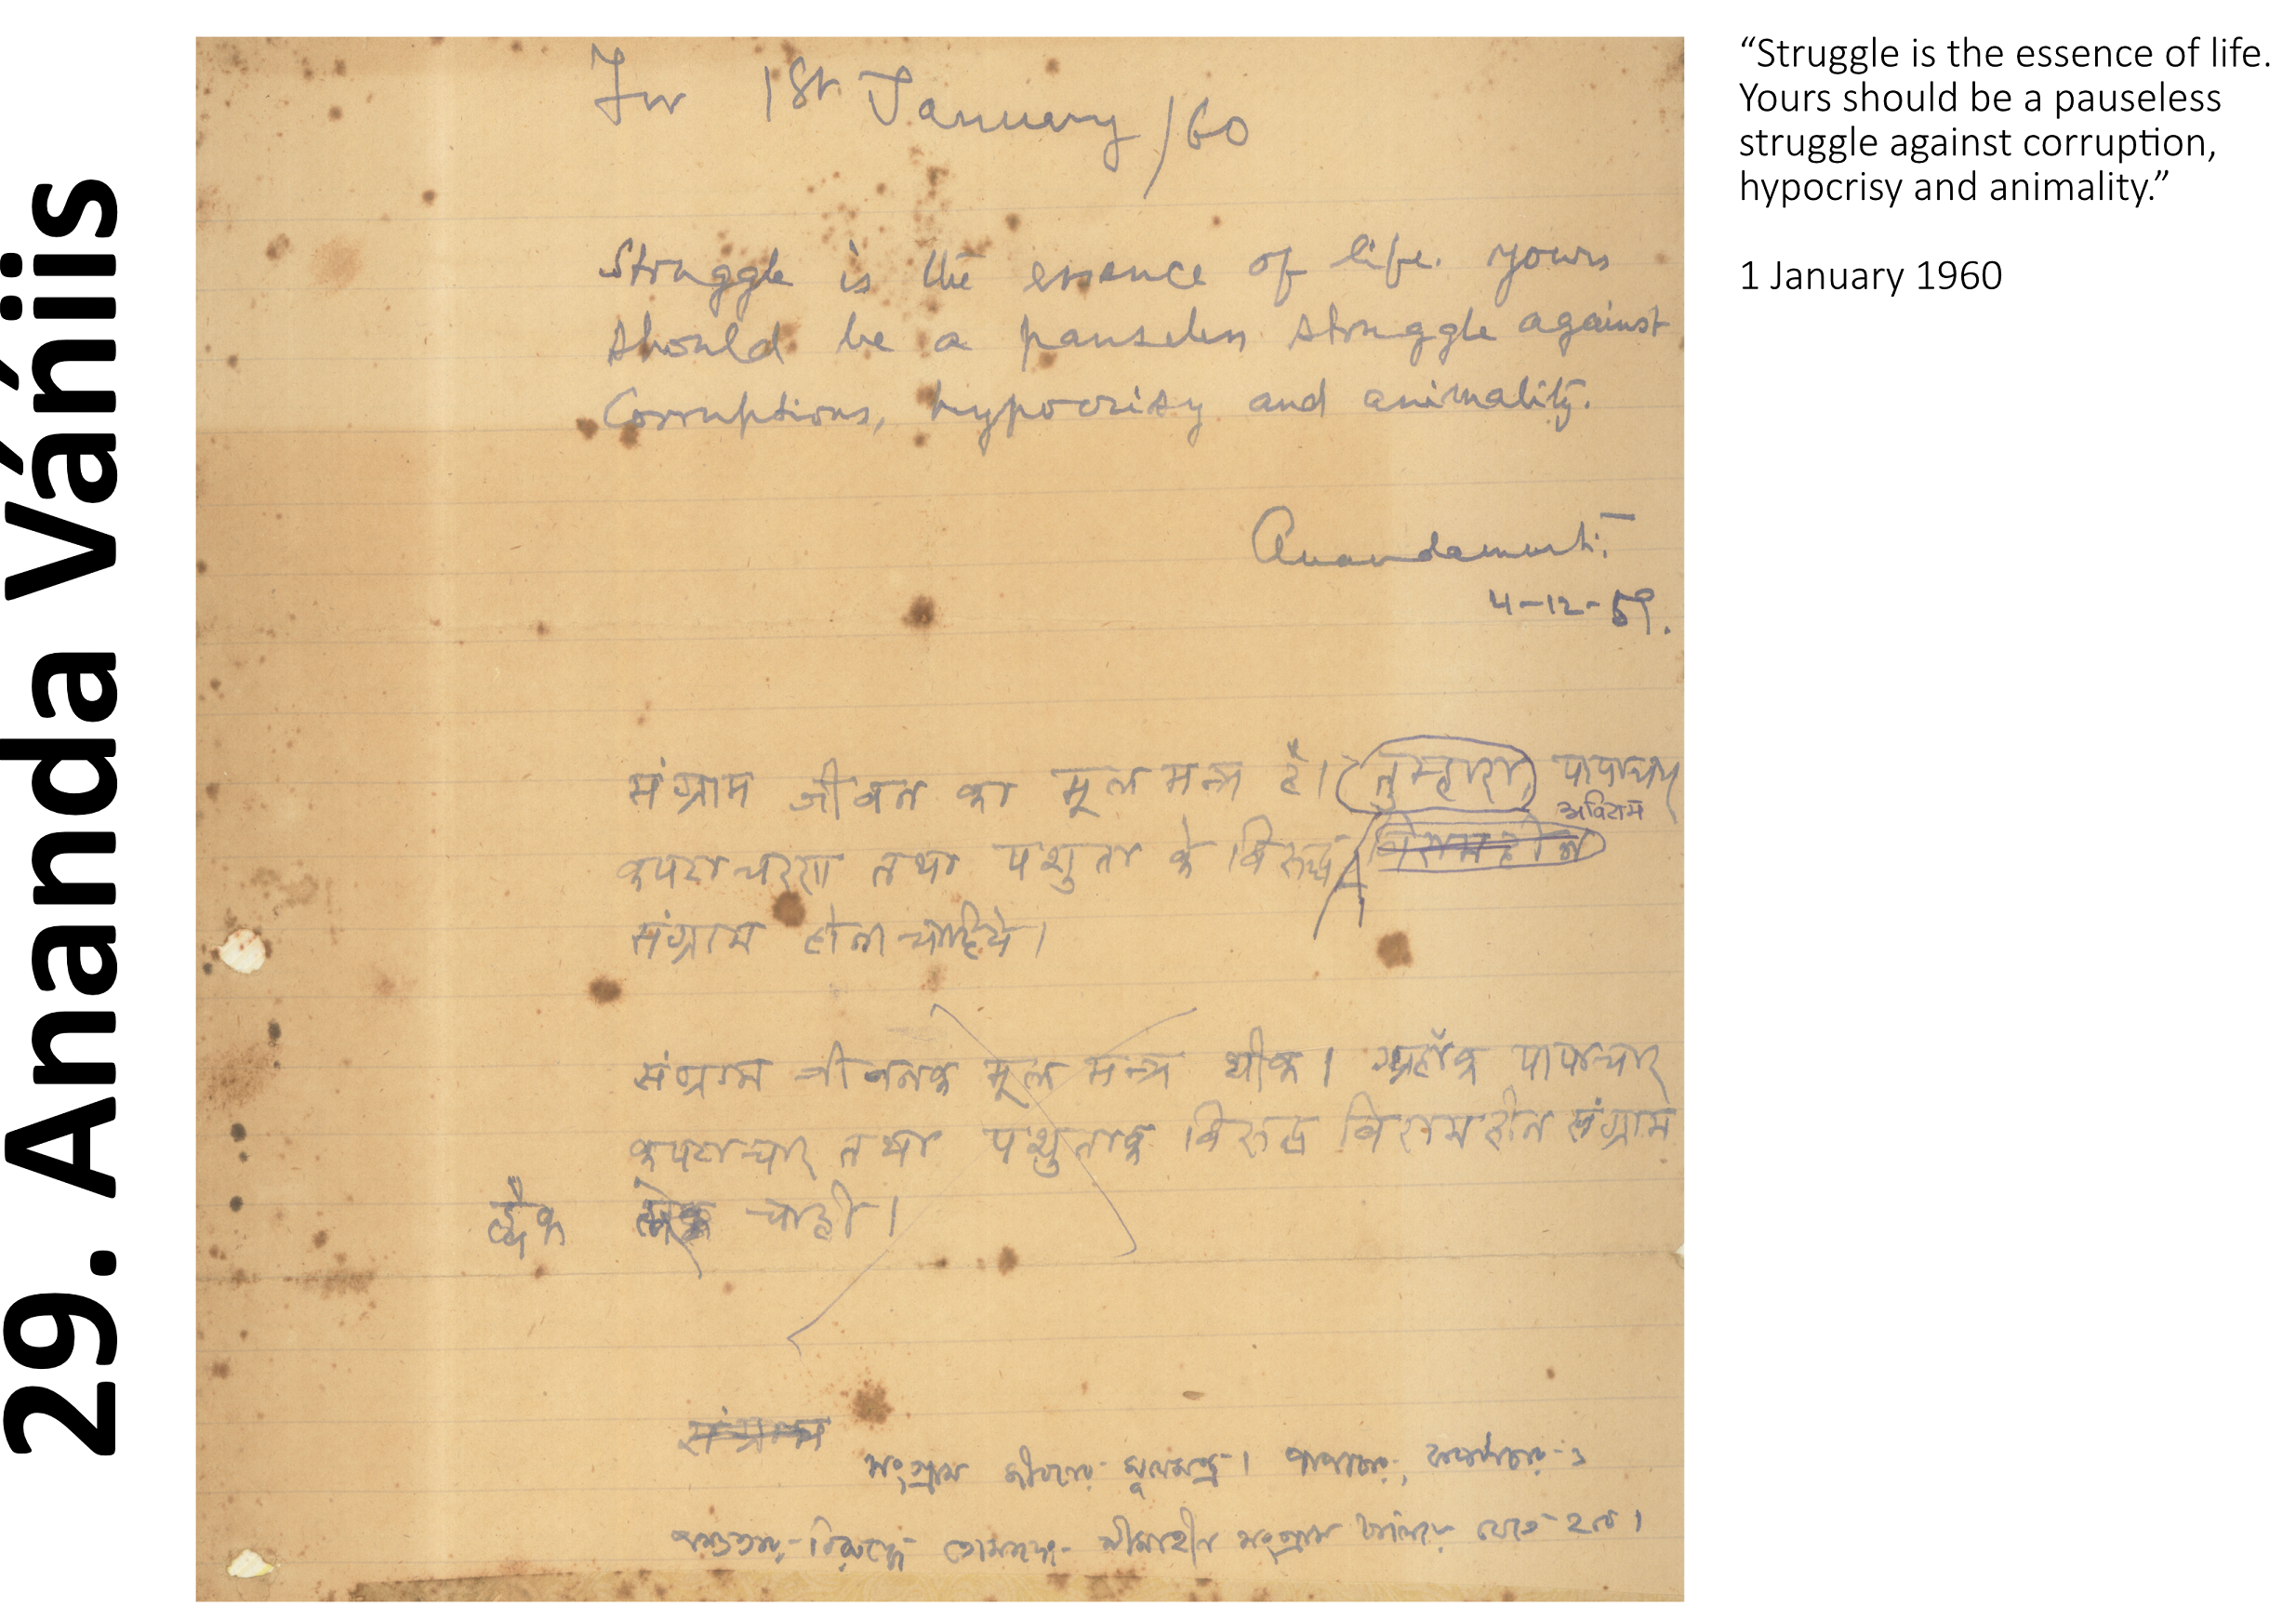 29. Ananda Váńiis
For 1st January/60
Struggle is the essence of life. Yours
should be a pauseless struggle against
Corruptions, hypocrisy and animality.
Anandamurti
4-12-59.
संग्राम जीवन का मूल मन्त्र है। तुम्हारा, पापाचार
अविराम
कपटाचरण तथा पशुता के विरुद्ध विरामहीन
संग्राम होना चाहिये।
संग्राम जीवनक मूल मन्त्र थीक। अहाँक पापाचार
कपटाचार तथा पशुताक विरुद्ध विरामहीन संग्राम
चाही।
संग्राम
সংগ্রাম জীবনের মূলমন্ত্র। পাপাচার, কপটাচার ও
পশুতার বিরুদ্ধে তোমাদের সীমাহীন সংগ্রাম চালিয়ে যেতে হবে।
“Struggle is the essence of life.
Yours should be a pauseless
struggle against corruption,
hypocrisy and animality.”
1 January 1960